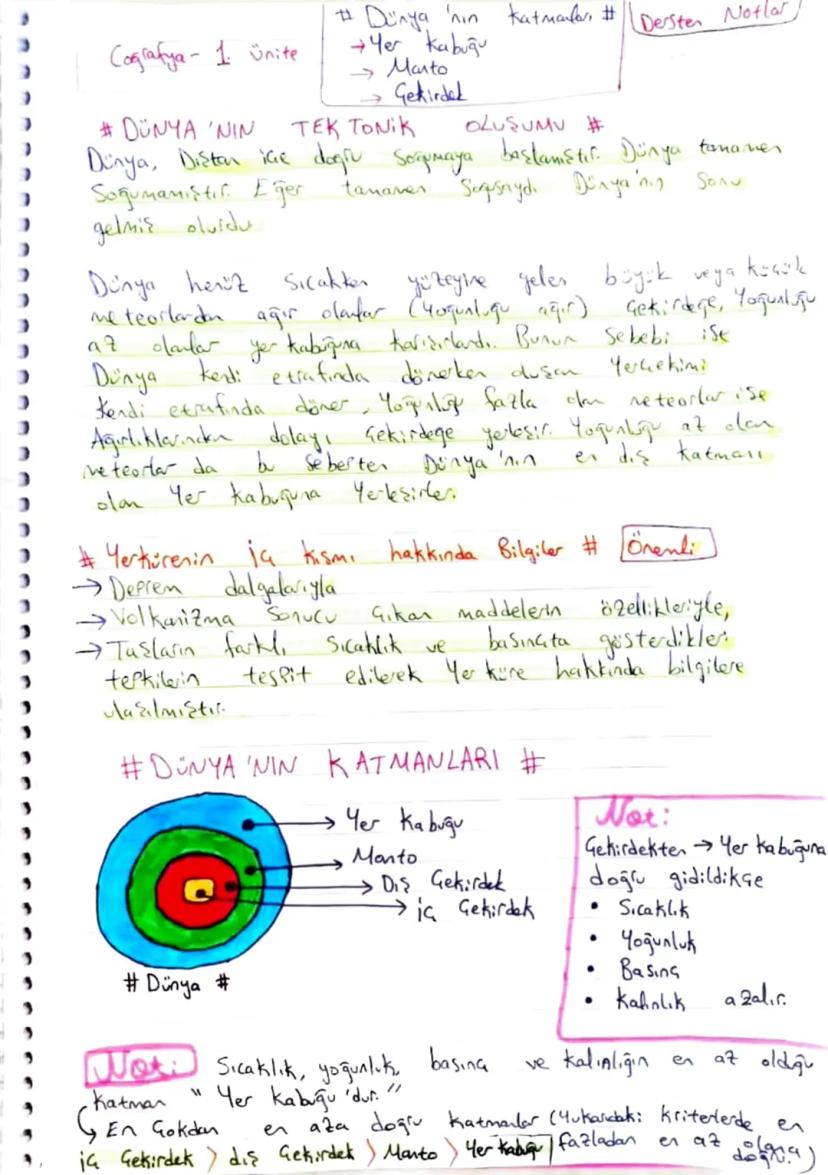 Coğrafya - 1. ünite
# Dünya 'nın katmanları #
→ Yer kabuğu
→ Manto
→ Çekirdek
Dersten Notlar
# DÜNYA 'NIN TEKTONİK OLUŞUMU #
Dünya, Dıştan içe doğru soğumaya başlamıştır. Dünya tamamen
Soğumamıştır. Eğer tamamen Soğusaydı Dünya'nın Sonu
gelmiş olurdu
Dünya henüz Sıcakken yüzeyine gelen büyük veya küçük
meteorlardan ağır olanlar (Yoğunluğu ağır) Çekirdeğe, Yoğunluğu
az olanlar yer kabuğuna karışırlardı. Bunun Sebebi ise
Dünya Kendi etrafında dönerken oluşan Yerçekimi
Kendi etrafında döner, Yoğunluğu fazla olan meteorlar ise
Ağırlıklarından dolayı Çekirdeğe yerleşir. Yoğunluğu az olan
meteorlar da bu Sebepten Dünya 'nın en dış katmanı
olan Yer kabuğuna Yerleşirler.
# Yerkürenin iç kısmı hakkında Bilgiler # Önemli
→ Deprem dalgalarıyla
→ Volkanizma Sonucu Çıkan maddelerin özellikleriyle,
→ Taşların farklı Sıcaklık ve basınçta gösterdikleri
tepkilerin tespit edilerek Yer küre hakkında bilgilere
ulaşılmıştır.
# DÜNYA 'NIN KATMANLARI #
→ Yer Kabuğu
→ Manto
→ Dış Çekirdek
→ iç Çekirdek
# Dünya #
Not:
Çekirdekten → Yer kabuğuna
doğru gidildikçe
• Sıcaklık
• Yoğunluk
• Basınç
• Kalınlık azalır.
Not: Sıcaklık, yoğunluk, basınç ve kalınlığın en az olduğu
katman " Yer Kabuğu 'dur. "
↳ En Çokdan en aza doğru katmanlar (Yukarıdaki kriterlerde en
fazladan en az olana doğru)
iç Çekirdek > dış Çekirdek > Manto > Yer kabuğu